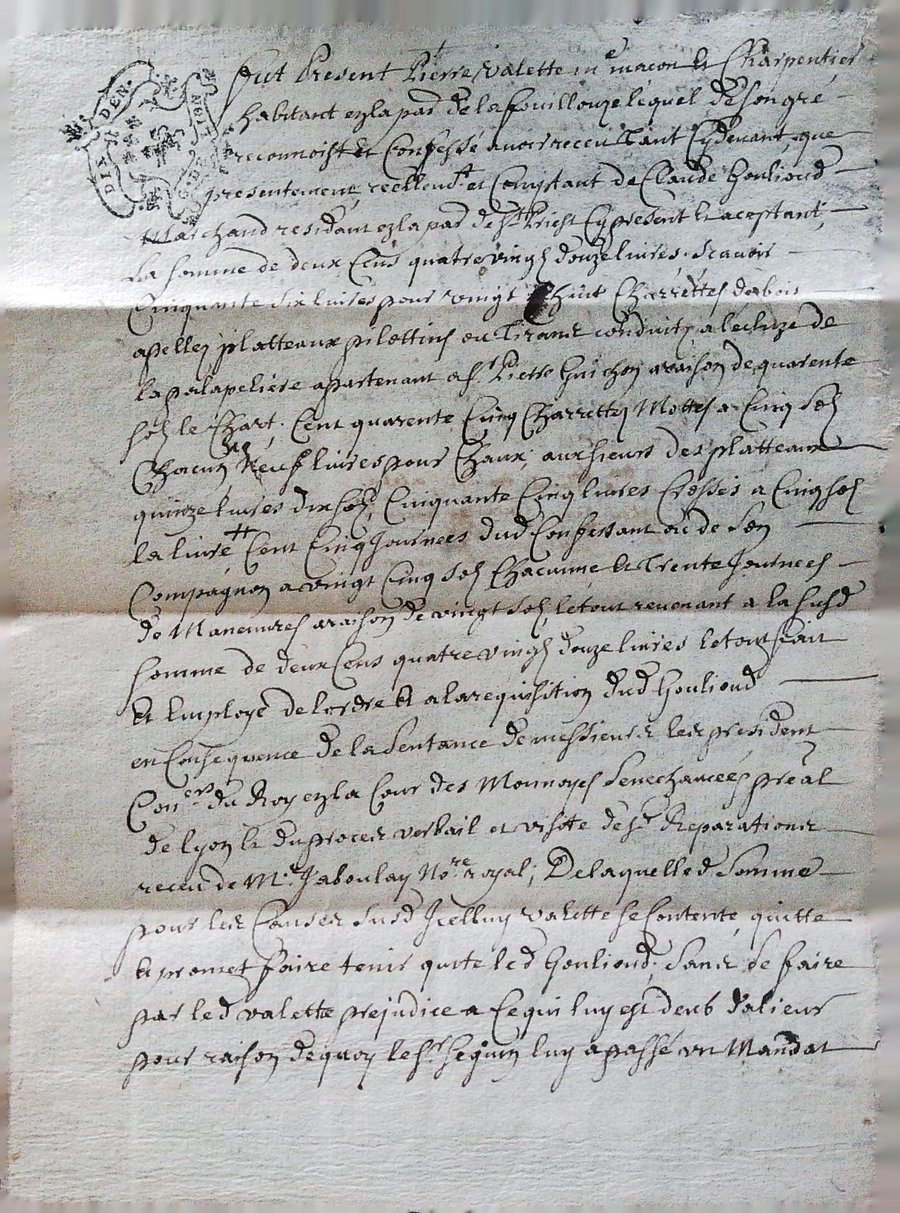 DIX DEN.
G. D. LION
Fut Present Pierre Valette me macon & Charpentier
habitant en la par de la fouillouze lequel de son gre
reconnoist et Confesse avoir receu Tant Cydevant, que
presentement, reellemt et Comptant de Claude Gouliond
Marchand residant en la par de st Priest Cy present & aceptant,
la somme de deux Cens quatre vingt douze livres. Scavoir
Cinquante six livres pour vingt & huit Charrettes de bois
apellez platteaux pilottins ou Tirant conduitz a lecluze de
la palapeliere apartenant a sr Pierre Guichon a raison de quarente
solz le Chart. Cent quarente Cinq Charrettes Mottes a Cinq solz
Chacune, Neuf livres pour Chaux, aux sieurs des platteaux
quinze livres dix solz, Cinquante Cinq livres Crosses a Cinq solz
la livre, Cent Cinq Journees dud Confessant ou de son
Compagnon a vingt Cinq solz Chacunne & Trente Journees
de Maneuvres a raison de vingt solz, le tout revenant a la susd
somme de deux Cens quatre vingt douze livres le tout fait
& Employé de lordre & a la requisition dud Gouliond
en Consequence de la Sentance de messieurs les president
Coners du Roy en la Cour des Monnoyes Senechaucee & preal
de lyon & du proces verbail et visite de sd Reparations
receu de Mr Jaboulay Nore royal; De laquelle d Somme
pour les Causes susd Icelluy valette se Contente, quitte
& promet faire tenir quite led Gouliond; sans se faire
par led valette prejudice a Ce qui luy est deub dalieur
pour raison de quoy le sr seguin luy a passé un Mandat